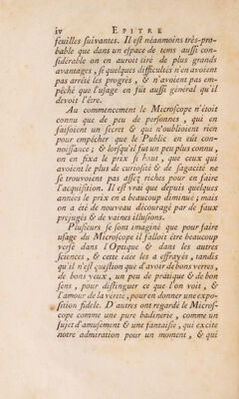 iv EPITRE
feuilles suivantes. Il est néanmoins très-pro-
bable que dans un espace de tems aussi con-
sidérable on en auroit tiré de plus grands
avantages, si quelques difficultés n'en avoient
pas arrêté les progrès, & n'avoient pas em-
pêché que l'usage en fut aussi general qu'il
devoit l'être.
Au commencement le Microscope n'étoit
connu que de peu de personnes, qui en
faisoient un secret & qui n'oublioient rien
pour empêcher que le Public en eût con-
noissance; & lorsqu'il fut un peu plus connu,
on en fixa le prix si haut, que ceux qui
avoient le plus de curiosité & de sagacité ne
se trouvoient pas assez riches pour en faire
l'acquisition. Il est vrai que depuis quelques
années le prix en a beaucoup diminué; mais
on a été de nouveau découragé par de faux
prejugés & de vaines illusions.
Plusieurs se sont imaginé que pour faire
usage du Microscope il falloit être beaucoup
versé dans l'Optique & dans les autres
sciences, & cette idée les a effrayés, tandis
qu'il n'est question que d'avoir de bons verres,
de bons yeux, un peu de pratique & de bon
sens, pour distinguer ce que l'on voit, &
l'amour de la verité, pour en donner une expo-
sition fidele. D'autres ont regardé le Micros-
cope comme une pure badinerie, comme un
sujet d'amusement & une fantaisie, qui excite
notre admiration pour un moment, & qui